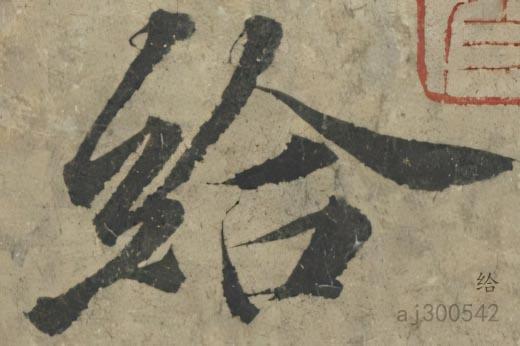 给
给
aj300542